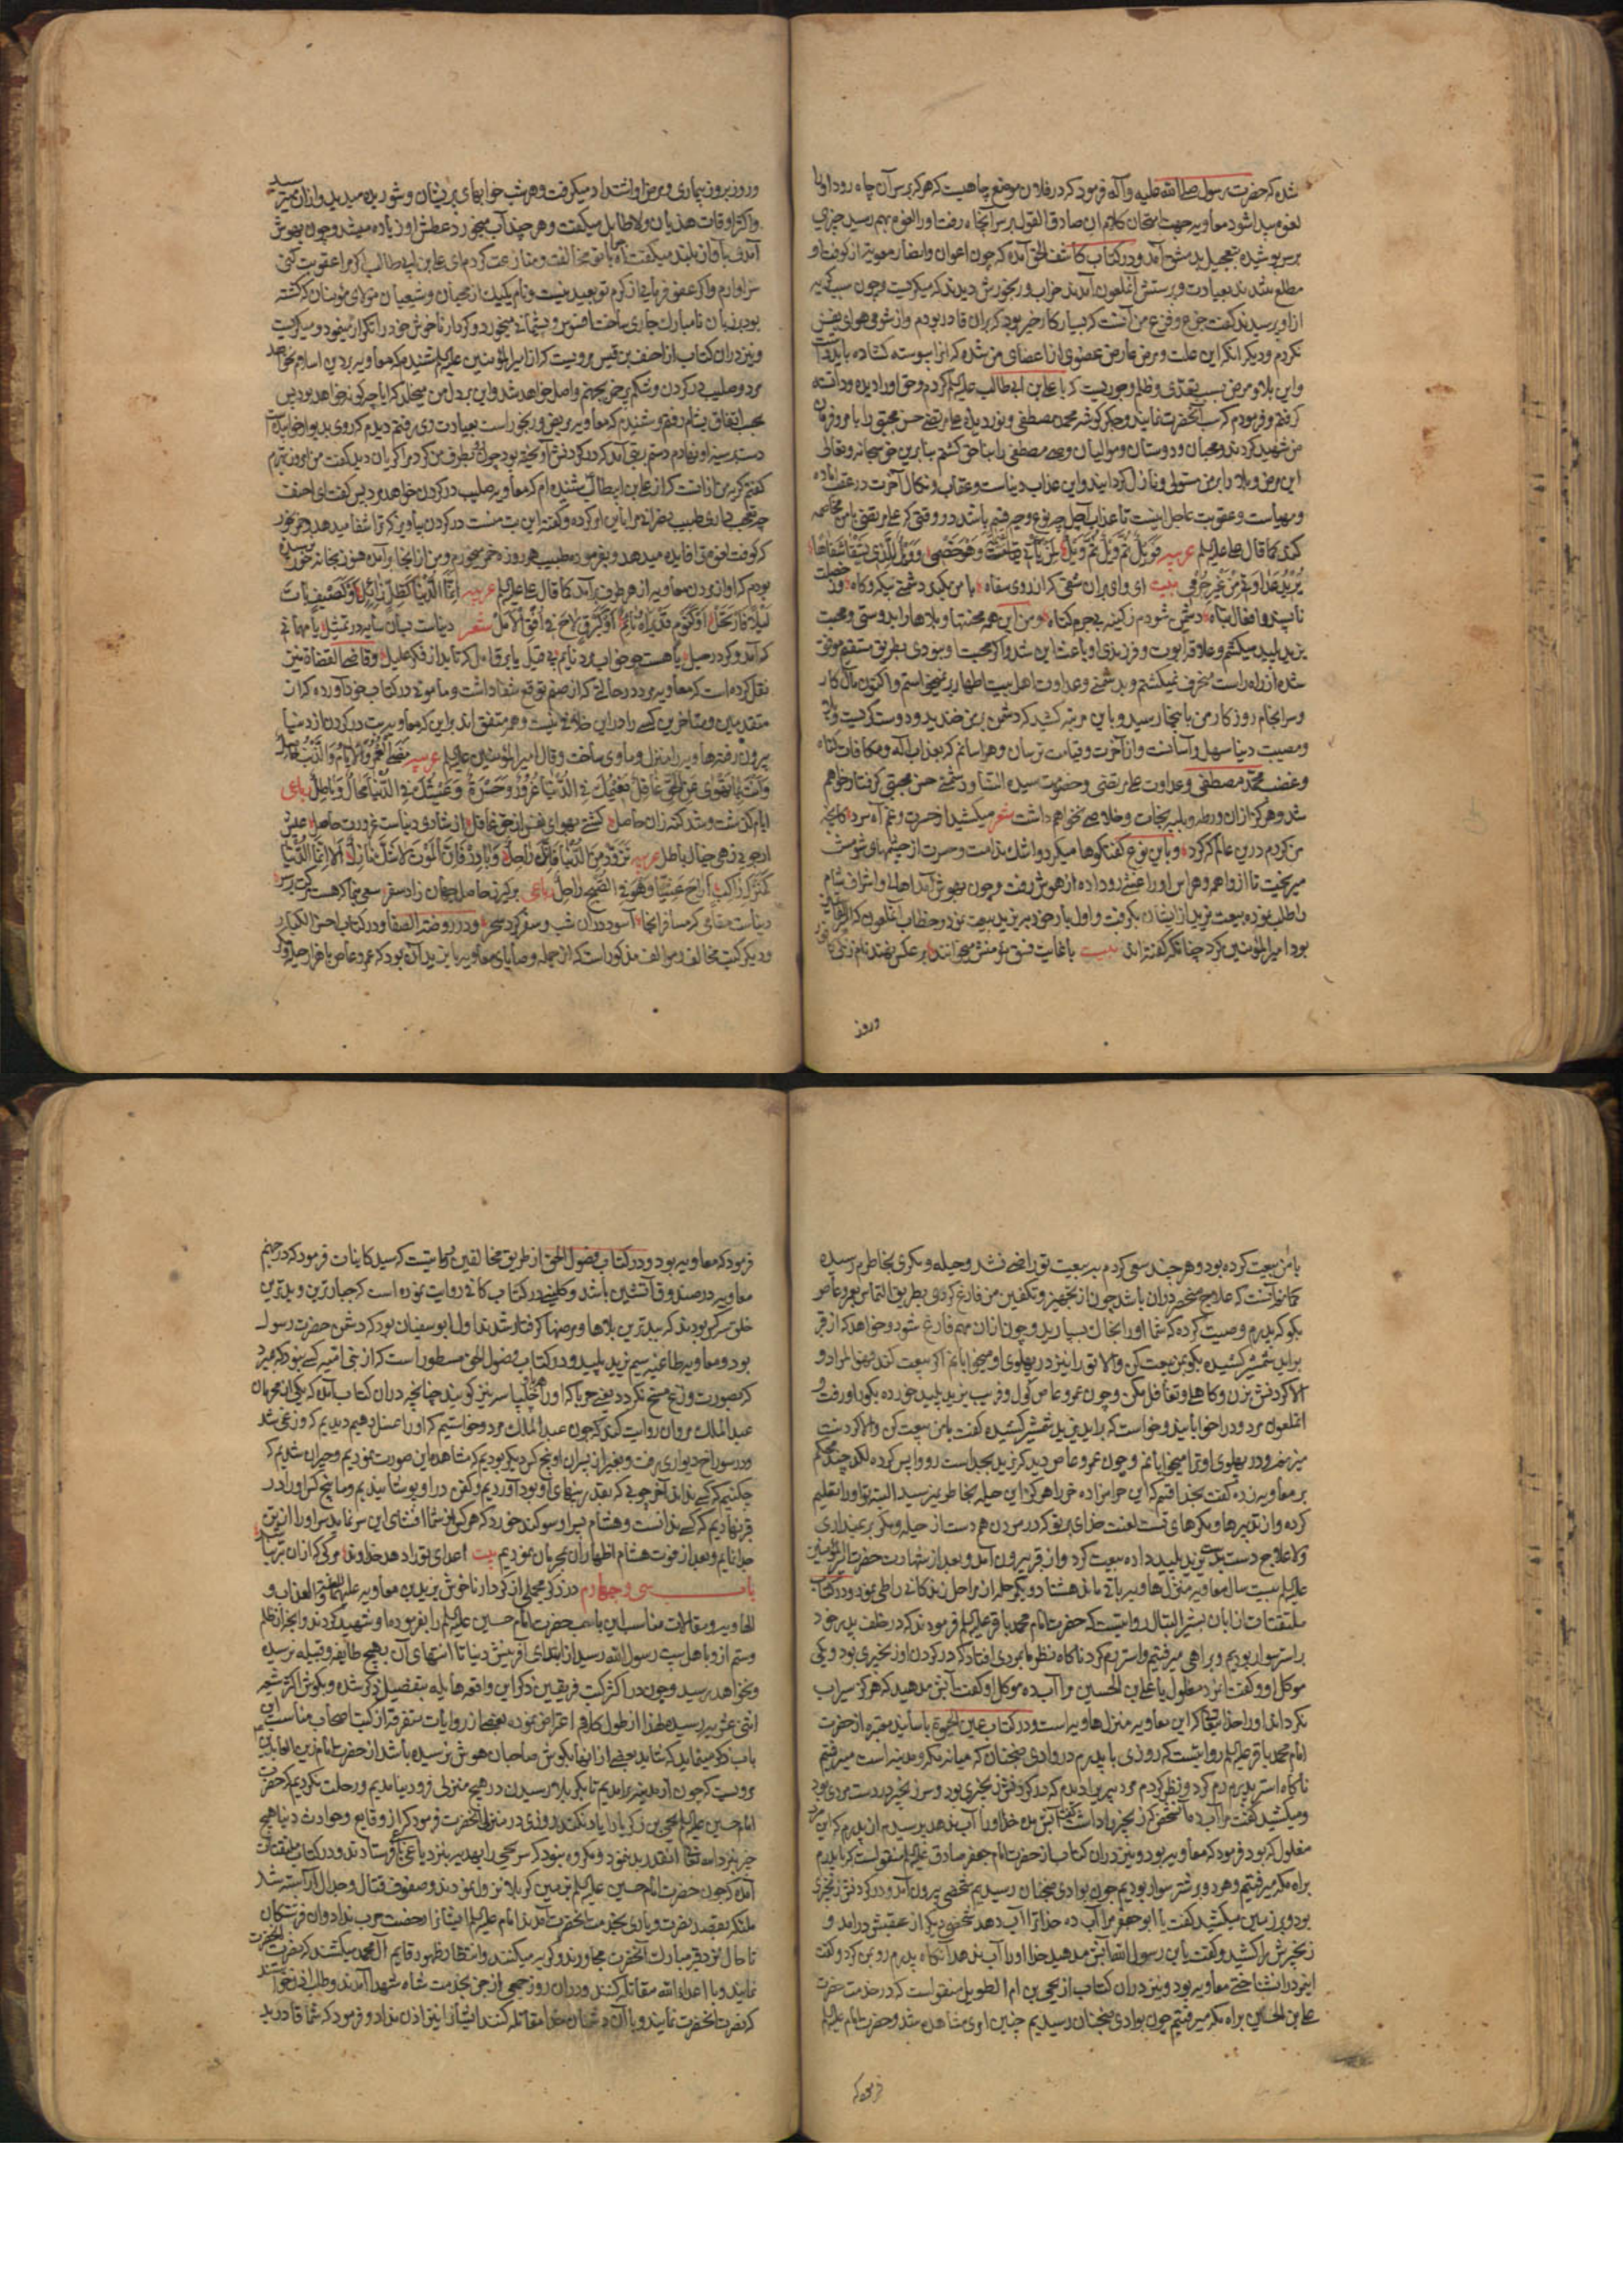 شده که حضرت رسول صلی الله علیه و آله فرمود که در فلان موضع چاهیست که هر که بر سر آن چاه رود او را
لقوه پیدا شود معاویه جهت امتحان کلام آن صادق القول بر سر آنچاه رفت و او را لقوه بهم رسید چیزی
بر سر پوشیده بتعجیل بدمشق آمد و در کتاب کاشف الحق آمده که چون اعوان و انصار معویه از کوفت او
مطلع شدند بعیادت و پرسش آنملعون آمدند خراب و رنجورش دیدند که میگریست و چون سبب گریه
از او پرسیدند گفت جزع و فزع من آنست که بسیار کار خیر بود که بر آن قادر بودم و از شومی هوای نفس
نکردم و دیگر آنکه این علت و مرض عارض عضوی از اعضای من شده که آنرا پیوسته گشاده باید داشت
و این بلا و مرض بسبب تعدی و ظلم و جوریست که با علی بن ابی طالب علیه السلم کردم و حق او را دیده و دانسته
گرفتم و فرمودم که سب آنحضرت نمایند و جگر گوشه محمد مصطفی و نور دیده علی مرتضی حسن مجتبی را با مر و فرمان
من شهید کردند و محبان و دوستان و موالیان وصی مصطفی را بناحق کشتم بنابرین حق سبحانه و تعالی
این مرض و بلا را بر من مستولی و نازل گردانید و این عذاب دنیاست و عقاب و نکال آخرت در عقب آماده
و مهیاست و عقوبت عاجل اینست تا عذاب آجل چه نوع و چه قسم باشد در وقتی که علی مرتضی با من مخاصمه
کند کما قال علی علیه السلم عربیه فویل ثم ویل ثم ویل
بیت ای وای بر آن شقی که از روی سفاه با من بکند دشمنی بیگه و گاه
ناپسند و افعال تباه دشمن شودم ز کینه بی جرم و گناه و من این همه محنتها و بلاها را بدوستی و محبت
یزید پلید میکشم و علاقه ابوت و فرزندی او باعث این شد و اگر محبت او نبودی بطریق مستقیم موفق
شده از راه راست منحرف نمیگشتم و بدشمنی و عداوت اهل بیت اطهار بر نمیخاستم و اکنون مآل کار
و سرانجام روزگار من باینجا رسید و باین مرتبه کشید که دشمن بر من خندید و دوست گریست و بلا
و مصیبت دنیا سهل و آسانست و از آخرت و قیامت ترسان و هراسانم که بعذاب اله و مکافات گناه
و غضب محمد مصطفی و عداوت علی مرتضی و خصومت سیدة النسا و دشمنی حسن مجتبی گرفتار خواهم
شد و هرگز از آن ورطه و بلیه نجات و خلاصی نخواهم داشت شعر میکشید از حسرت و غم آه سرد کانچه
من کردم درین عالم که کرد و باین نوع گفتگوها میکرد و اشک ندامت و حسرت از چشمهای شومش
میریخت تا از واهمه و هراس او را غشی رو داده از هوش رفت و چون بهوش آمد اهالی و اشراف شام
را طلب نموده بیعت یزید از ایشان بگرفت و اول بار خود بر یزید بیعت نمود و خطاب آنملعون
بود امیر المؤمنین کرد چنانکه گفته اند بیت با غایت فسق مؤمنش میخوانند بر عکس نهند نام زنگی کافور
وروز
و روز بروز بیماری و مرض او اشتداد میگرفت و هر شب خوابهای پریشان و شوریده میدید و از آن میترسید
و اکثر اوقات هذیان و لاطایل میگفت و هر چند آب میخورد عطش او زیاده میشد و چون بهوش
آمدی بآواز بلند میگفت آه با تو مخالفت و منازعت کردم ای علی بن ابی طالب اگر مرا عقوبت کنی
سزاوارم و اگر عفو فرمایی از کرم تو بعید نیست و نام یکیک از محبان و شیعیان مولای مؤمنان که کشته
بود بر زبان نامبارک جاری ساخت افسوس و پشیمانی میخورد و کردار ناخوش خود را تکرار مینمود و میگریست
و نیز در آن کتاب از احنف بن قیس مرویست که از امیر المؤمنین علیه السلم شنیدم که معاویه بر دین اسلام نخواهد
مرد و صلیب در گردن و شکم پر خمر بجهنم واصل خواهد شد و این بر دل من میخلد که آیا چگونه خواهد بود پس
بحسب اتفاق بشام رفتم و شنیدم که معاویه مریض و رنجور است بعیادت وی رفتم دیدم که روی بدیوار خوابیده است
دست بر سینه او نهادم دستم به بتی آمد که در گردنش آویخته بود چون نظرش بطرف من کرد مرا گریان دید گفت من امروز بهترم
گفتم گریه من از آنست که از علی بن ابیطالب شنیده ام که معاویه صلیب در گردن خواهد مرد پس گفت ای احنف
چه تعجب داری طبیب نصرانی مرا باین امر کرده و گفته این بت منست در گردن بیاویز که ترا شفا میدهد و خمر بخور
که کوفت لقوه ترا فایده میدهد و بفرموده طبیب هر روزه خمر میخورم و من از آنجا برآمده هنوز بخانه خود نرسیده
بودم که آواز مردن معاویه از هر طرف برآمد کما قال علی علیه السلم عربیه انما الدنیا کظل زائل او کضیف بات
لیلا فارتحل او کنوم قد یراه نائم او کبرق لاح فی افق الامل شعر دنیاست بسان سایه در تمثیل یا مهمانی
که آمد و کرد رحیل یا هست چو خواب مرد نایم و قاضی القضاة نیز
نقل کرده است که معاویه مرد در حالتی که از صنم توقع شفا داشت و مامونی در کتاب خود آورده که از
متقدمین و متاخرین کسی را در این خلافی نیست و همه متفق اند بر این که معاویه بت در گردن از دنیا
بیرون رفته هاویه را منزل و ماوی ساخت و قال امیر المؤمنین علیه السلم عربیه مضی العمر و الایام و الذنب حاصل
و انت بما تهوی عن الحق غافل نعیمک فی الدنیا غرور و حسرة و عیشک فی الدنیا محال و باطل رباعی
ایام گذشت و شد گنه زان حاصل گشتی بهوای نفس از حق غافل از شادی دنیاست غرورت حاصل عیش
ار جویی زهی خیال باطل عربیه تزود من الدنیا فانک راحل و بادر فان الموت لا شک نازل الا انما الدنیا
کمنزل راکب اراح عشیا و هو فی الصبح راحل رباعی برگیر ز حاصل جهان زاد سفر سعی بنما که هست مرگت بر سر
دنیاست مقامی که مسافر آنجا آسود در آن شب و سفر کرد سحر و در روضة الصفا و در کتاب احسن الکبار
و دیگر کتب مخالف و موالف مذکور است که از جمله وصایای معاویه با یزید آن بود که عمرو عاص با هزار حیله و مکر
با من بیعت کرده بود و هر چند سعی کردم به بیعت تو راضی نشد و حیله و مکری بخاطرم رسیده
گمانم آنست که علاج منحصر در آن باشد چون از تجهیز و تکفین من فارغ گردی بطریق التماس بعمرو عاص
بگو که پدرم وصیت کرده که شما او را بخاک بسپارید و چون از آن مهم فارغ شود و خواهد که از قبر
برآید شمشیر کشیده بگو بمن بیعت کن و الا تو را نیز در پهلوی او میخوابانم اگر بیعت کند فهو المراد و
الا گردنش بزن و کاهلی و تغافل مکن و چون عمرو عاص گول و فریب یزید پلید خورده بگور او رفت و
آنملعون مردود را خوابانید و خواست که برآید یزید شمشیر کشیده گفت با من بیعت کن و الا گردنت
میزنم و در پهلوی او ترا میخوابانم و چون عمرو عاص دید که یزید بجد است رو واپس کرده لگد چند محکم
بر معاویه زده گفت بخدا قسم که این حرامزاده خر را هرگز این حیله بخاطر نمیرسید البته تو او را تعلیم
کرده و از تدبیرها و مکرهای تست لعنت خدای بر تو که در مردن هم دست از حیله و مکر بر نمیداری
و لاعلاج دست بدست یزید پلید داده بیعت کرد و از قبر بیرون آمد و بعد از شهادت حضرت امیر المؤمنین
علیه السلم بیست سال معاویه منزل هاویه باقی ماند هشتاد و یک مرحله از مراحل زندگانی را طی نمود و در کتاب
ملتقطات از ابان بشیر البتال روایتست که حضرت امام محمد باقر علیه السلم فرمودند که در خلف پدر خود
بر استر سوار بودیم و براهی میرفتیم و استرم رم کرد ناگاه نظرم بمردی افتاد که در گردن او زنجیری بود و یکی
موکل او و گفت آنمرد مغلول یا علی بن الحسین مرا آب ده موکل او گفت آبش مدهید که هرگز سیراب
نگرداند او را خدا بتحقیق که این معاویه منزل هاویه است و در کتاب عین الحیوة باسانید معتبره از حضرت
امام محمد باقر علیه السلم روایتست که روزی با پدرم در وادی ضجنان که میانه مکه و مدینه است میرفتیم
ناگاه استر پدرم رم کرد و نظر کردم مرد پیری را دیدم که در گردنش زنجیری بود و سر زنجیر در دست مردی بود
و میکشید گفت مرا آب ده آنشخص که زنجیر را داشت گفت آبش مده خدا او را آب ندهد پرسیدم از پدرم که این مرد
مغلول که بود فرمود که معاویه بود و نیز در آن کتاب از حضرت امام جعفر صادق علیه السلم منقولست که با پدرم
براه مکه میرفتیم و هر دو بر شتر سوار بودیم چون بوادی ضجنان رسیدیم شخصی بیرون آمد و در گردنش زنجیری
بود و بر زمین میکشید گفت یا ابو جعفر مرا آب ده خدا ترا آب دهد شخص دیگر از عقبش درآمد و
زنجیرش را کشید و گفت یابن رسول الله آبش مدهید خدا او را آب ندهد آنگاه پدرم رو بمن کرد و گفت
اینمرد را نشناختی معاویه بود و نیز در آن کتاب از یحیی بن ام الطویل منقولست که در خدمت حضرت
علی بن الحسین براه مکه میرفتیم چون بوادی ضجنان رسیدیم چنین امری مشاهده شد و حضرت امام علیه السلم
فرمود که
فرمود که معاویه بود و در کتاب فصول الحق از طریق مخالفین روایتست که سید کاینات فرمود که در جهنم
معاویه در صندوق آتشین باشد و کلینی در کتاب کافی روایت نموده است که جبارترین و بدترین
خلق سه کس بودند که ببدترین بلاها و مرضها گرفتار شدند اول ابوسفیان بود که دشمن حضرت رسول
بود و معاویه طاغیه سیم یزید پلید و در کتاب فصول الحق مسطور است که از بنی امیه کسی نبود که بمیرد
که بصورت وزغ مسخ نگردد یعنی چرپا که او را چلپاسه نیز گویند چنانچه در آن کتاب آمده که یکی از محرمان
عبدالملک مروان روایت کند که چون عبدالملک مرد و خواستیم که او را غسل دهیم دیدیم که وزغی شد
و در سوراخ دیواری رفت و بغیر از پسران او پنج کس دیگر بودیم که مشاهده این صورت نمودیم و حیران شدیم که
چکنیم که کسی نداند آخر چوبی که بقدر بود آوردیم و کفن در او پوشانیدیم و ما پنج کس او را در
قبر نهادیم که کسی ندانست و هشام پسر او سوگند خورد که هر کس از شما افشای این سر نماید سر او را از تن
جدا نمایم و بعد از فوت هشام اظهار آن بمحرمان نمودیم بیت اعدای تو را دهد خداوند مرگی که از آن بتر نباشد
باب سی و چهارم در ذکر مجملی از کردار ناخوش یزید بن معاویه علیهما اللعنة و العذاب و
الهاویه و مقالات مناسب این باب حضرت امام حسین علیه السلم را بفرموده او شهید کردند و آنچه از ظلم
و ستم از او باهل بیت رسول الله رسید از ابتدای آفرینش دنیا تا انتهای آن بهیچ طایفه و قبیله نرسیده
و نخواهد رسید و چون در اکثر کتب فریقین ذکر این واقعه هایله بتفصیل ذکر شده و بگوش اکثر شیعه
اثنی عشریه رسیده لهذا از طول کلام اعراض نموده بعضی از روایات متفرقه از کتب اصحاب مناسب این
باب ذکر مینماید که شاید بعضی از آنها بگوش صاحبان هوش نرسیده باشد از حضرت امام زین العابدین
مرویست که چون از مدینه برآمدیم تا بکربلا رسیدن در هیچ منزلی فرود نیامدیم و رحلت نکردیم که حضرت
امام حسین علیه السلم یحیی بن زکریا را یاد نکند روزی در منزلی آنحضرت فرمود که از وقایع و حوادث دنیا هیچ
چیز نزد خدا آنقدر بد ننمود و مکروه نبود که سر یحیی را بهدیه نزد یاغی فرستادند و در کتاب ملتقطات
آمده که چون حضرت امام حسین علیه السلم بزمین کربلا نزول نمودند و صفوف قتال و جدال آراسته شد
ملائکه بقصد نصرت و یاری بخدمت آنحضرت آمدند امام علیه السلم ایشانرا رخصت حرب نداد و آن فرشتگان
تا حال نزد قبر مبارک آنحضرت مجاورند و گریه میکنند و انتظار ظهور قایم آل محمد میکشند که نصرت آنحضرت
نمایند و با اعداء الله مقاتله کنند و در آن روز جمعی از جن بخدمت شاه شهدا آمدند و طلب اذن نمودند
که نصرت آنحضرت نمایند و با آن دشمنان خدا مقاتله کنند ایشانرا نیز اذن نداد و فرمود که شما قادرید